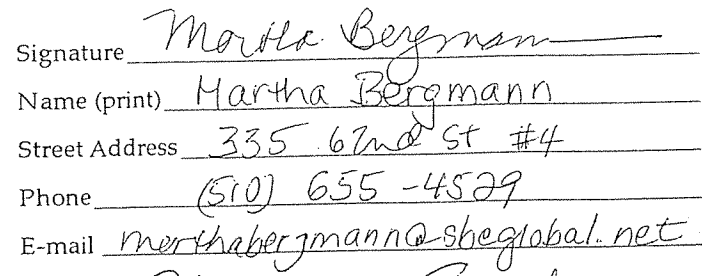 Signature Martha Bergmann
Name (print) Martha Bergmann
Street Address 335 62nd St #4
Phone (510) 655-4529
E-mail marthabergmann@sbcglobal.net